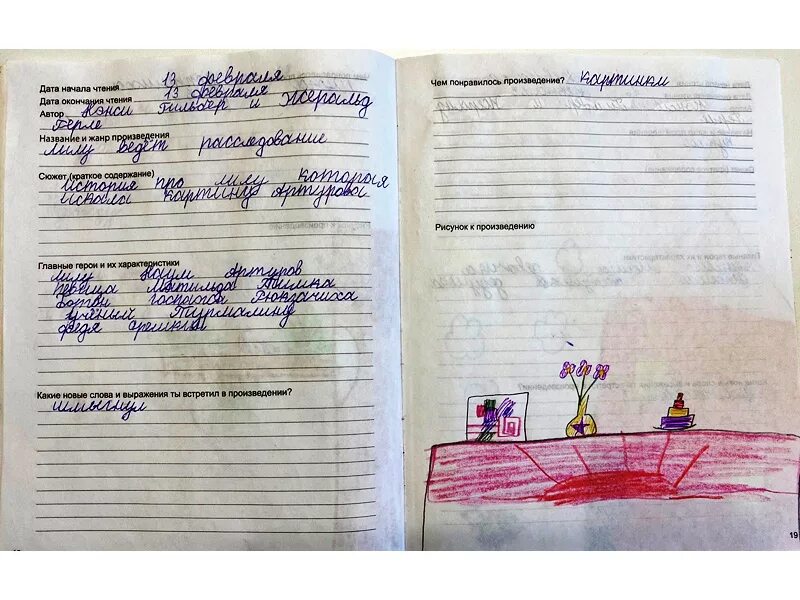 Дата начала чтения 13 февраля
Дата окончания чтения 13 февраля
Автор Нэнси Гильбер и Жеральд
Герле
Название и жанр произведения
Лилу ведёт расследование
Сюжет (краткое содержание)
История про лилу которая
искала картину Артурова
Главные герои и их характеристики
Лилу Наум Артуров
певица Матильда Тишка
Ботон госпожа Рюкзачиха
учёный Турмалину
федя орешкин
Какие новые слова и выражения ты встретил в произведении?
шмыгнул
Чем понравилось произведение? Картинки
Рисунок к произведению
19